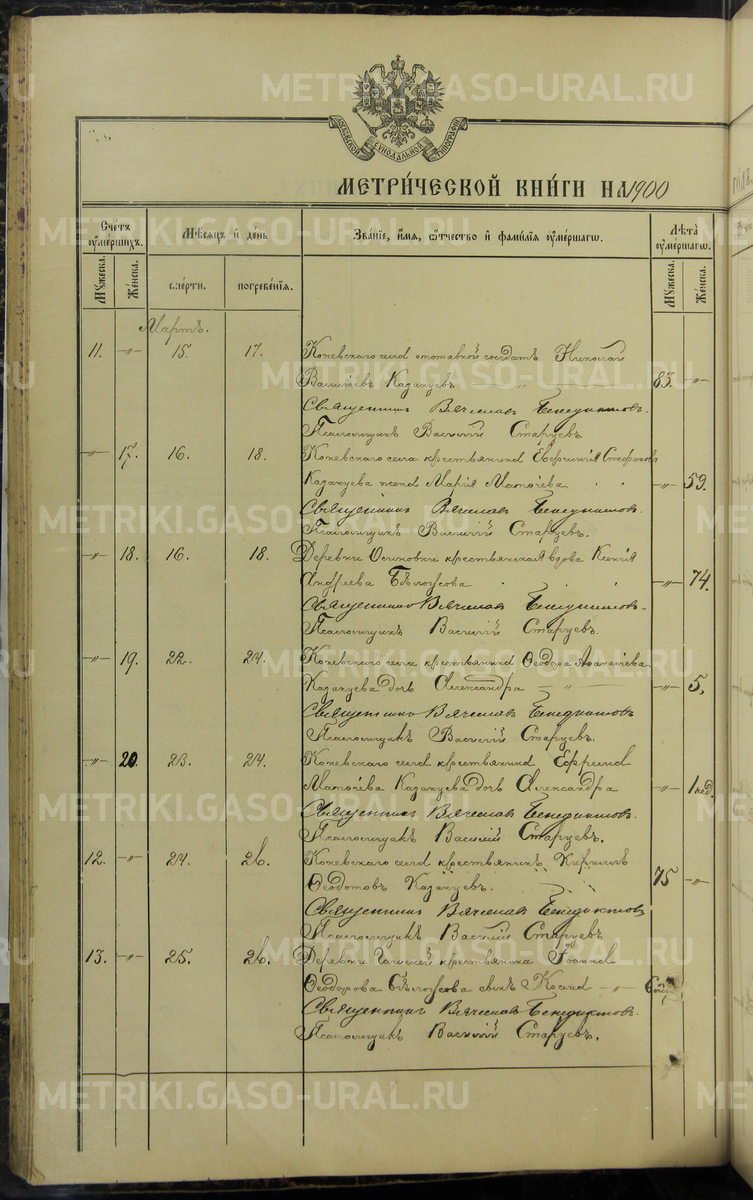 МОСКОВСКОЙ СѴНОДАЛЬНОЙ ТИПОГРАФІИ
МЕТРИ́ЧЕСКОЙ КНИ́ГИ НА 1900
Сче́тъ оуме́ршихъ.
Мѣсяцъ и де́нь
Зва́нїе, и́мя, ѻ́тчество и фами́лїя оуме́ршагѡ.
Лѣта̀ оуме́ршагѡ.
Му́жеска.
Же́нска.
сме́рти.
погребе́нїя.
Му́жеска.
Же́нска.
Мартъ.
11. —"— 15. 17. Коневскаго села отставной солдатъ Николай
Васильевъ Казанцевъ — " — 83. —"—
Священникъ Вячеславъ Бенедиктовъ.
Псаломщикъ Василій Старцевъ.
—"— 17. 16. 18. Коневскаго села крестьянина Стефанова
Казанцева жена Марія —"— 59.
Священникъ Вячеславъ Бенедиктовъ.
Псаломщикъ Василій Старцевъ.
—"— 18. 16. 18. Деревни Осиновки крестьянская вдова Ксенія
Андреева Бѣлоусова —"— 74.
Священникъ Вячеславъ Бенедиктовъ.
Псаломщикъ Василій Старцевъ.
—"— 19. 22. 24. Коневскаго села крестьянина Ѳеодора Аѳанасіева
Казанцева дочь Александра — " — —"— 5.
Священникъ Вячеславъ Бенедиктовъ
Псаломщикъ Василій Старцевъ.
—"— 20. 23. 24. Коневскаго села крестьянина Ефрема
Казанцева дочь Александра —"— 1 нед.
Священникъ Вячеславъ Бенедиктовъ.
Псаломщикъ Василій Старцевъ.
12. —"— 24. 26. Коневскаго села крестьянинъ Кириллъ
Ѳеодотовъ Казанцевъ. 75 —"—
Священникъ Вячеславъ Бенедиктовъ
Псаломщикъ Василій Старцевъ
13. —"— 25. 26. Деревни крестьянина Іоанна
Ѳеодорова Бѣлоусова сынъ Косма — " —
Священникъ Вячеславъ Бенедиктовъ.
Псаломщикъ Василій Старцевъ.
METRIKI.GASO-URAL.RU